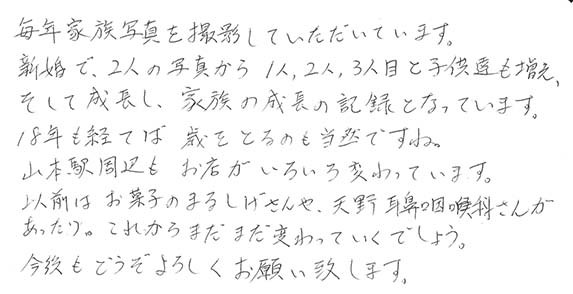 毎年家族写真を撮影していただいています。
新婚で、2人の写真から 1人,2人,3人目と子供達も増え、
そして成長し、家族の成長の記録となっています。
18年も経てば 歳をとるのも当然ですね。
山本駅周辺も お店がいろいろ変わっています。
以前は お菓子のまるしげさんや、天野耳鼻咽喉科さんが
あったり。これからまだまだ変わっていくでしょう。
今後もどうぞよろしくお願い致します。